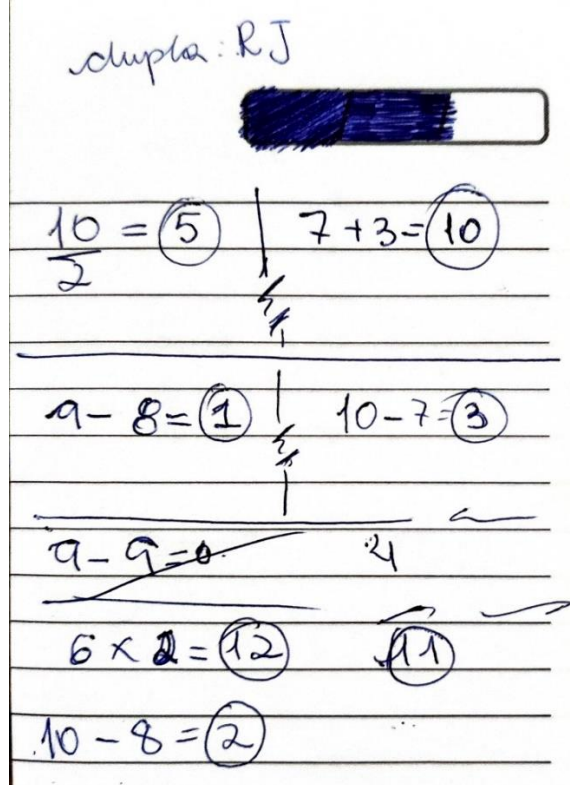 dupla: RJ
10/2 = 5 | 7 + 3 = 10
9 - 8 = 1 | 10 - 7 = 3
9 - 9 = 0 4
6 x 2 = 12 11
10 - 8 = 2